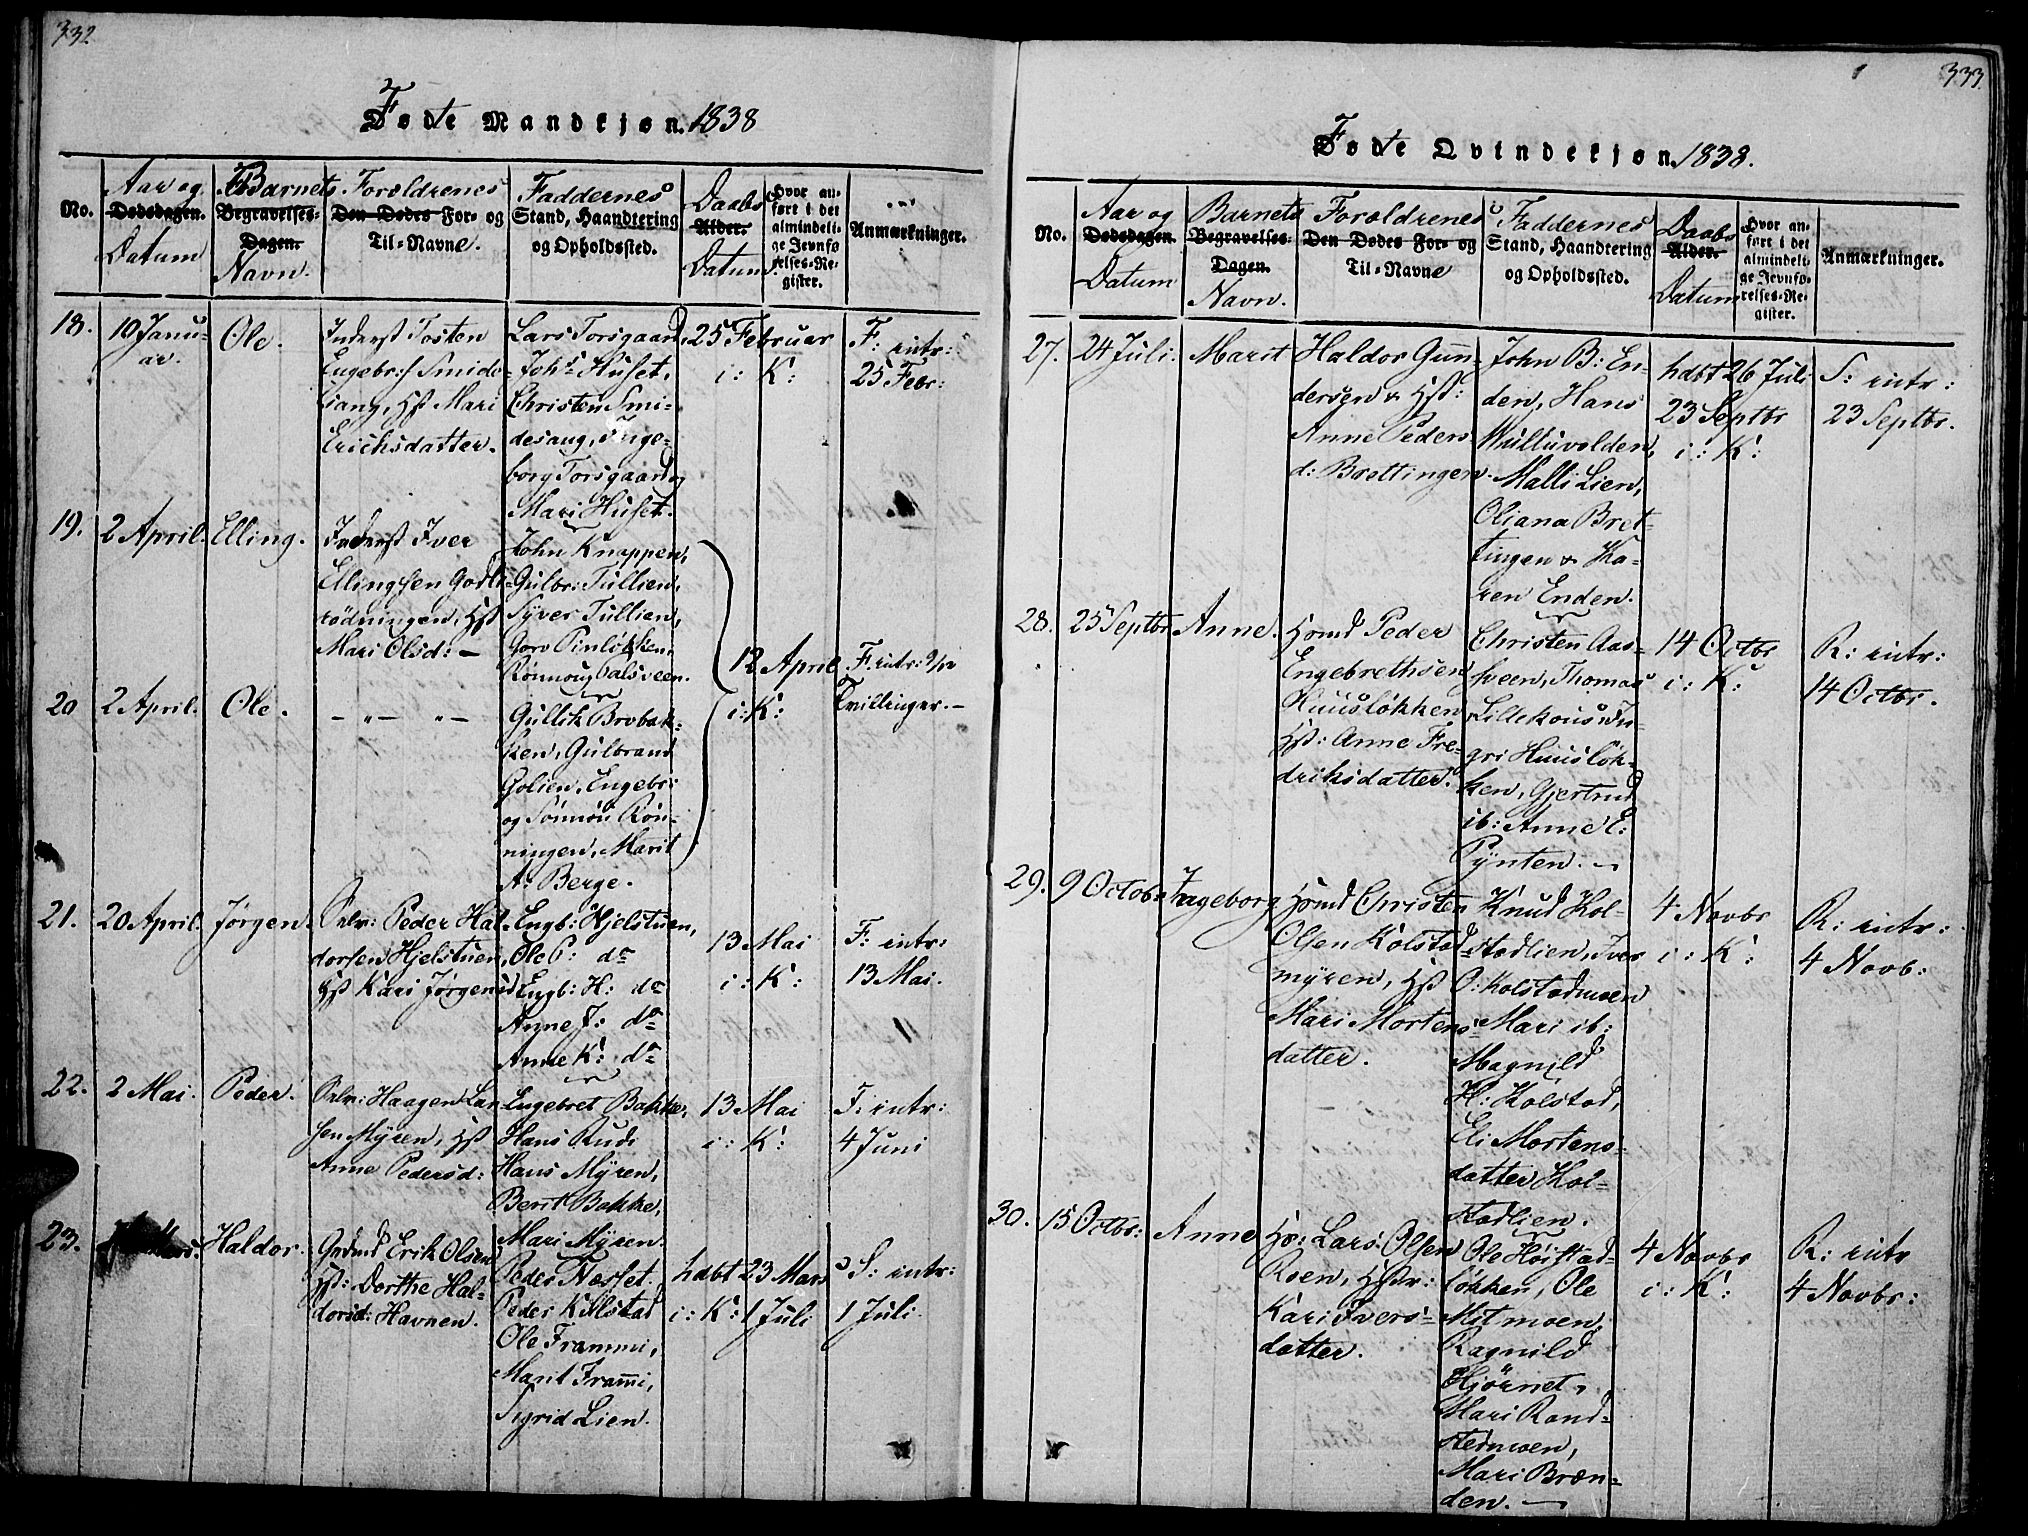 332
Fødte Mandkjøn. 1838
No.
Aar og
Dødsdagen.
Datum
Barnets
Begravelses-
Dagen.
Navn.
Forældrenes
Den Dødes For- og
Til-Navne.
Faddernes
Stand, Haandtering
og Opholdssted.
Daabs
Alder.
Datum
Hvor an-
ført i det
almindeli-
ge Jevnfø-
relses-Re-
gister.
Anmærkninger.
18.
10 Janu-
ar.
Ole.
Inderst Tosten
Engebr:s Smide-
sang, Hst Mari
Erichsdatter.
Lars Torsgaard,
Johs Huset,
Christen Smi-
desang, Inge-
borg Torsgaard og
Mari Huset.
25 Februar
i: K:
F: intr:
25 Febr:
19.
2 April.
Elling.
Inderst Iver
Ellingsen Godli-
rødningen, Hst
Mari Olsd: —
John Knappen,
Gulbr: Tullien,
Syver Tullien,
Goro Pinløkken,
Rønnoug Dalsveen.
12 April
i: K:
F: intr: 9/12
Tvillinger. —
20
2 April.
Ole.
— „ — „ —
Gullik Brobak-
ken, Gulbrand
Golien, Engebr:
og Sønnøu Røn-
ningen, Marit
A: Berge.
21.
20 April.
Jørgen.
Peder Hal-
dorsen Hjelstuen,
Hst Kari Jørgensd
Engb: Hjelstuen,
Ole P: do
Engb: H: do
Anne J: do
Anne K: do
13 Mai
i: K:
F: intr:
13 Mai.
22.
2 Mai.
Peder.
Haagen Lar-
sen Myren, Hst
Anne Pedersd:
Engebret Bakke,
Hans Rudi
Hans Myren,
Berit Bakke,
Mari Myren.
13 Mai
i: K:
F: intr:
4 Juni
23.
Haldor.
Gaardmd Erik Olsen
Hst: Dorthe Hal-
dorsd: Havnen.
Peder Næsset.
Peder Killstad
Ole Frammi,
Marit Frammi,
Sigrid Lien.
hdbt 23 Mars
i: K: 1 Juli
S: intr:
1 Juli.
333.
Fødte Qvindekjøn 1838.
No.
Aar og
Dødsdagen.
Datum
Barnets
Begravelses-
Dagen.
Navn.
Forældrenes
Den Dødes For- og
Til-Navne
Faddernes
Stand, Haandtering
og Opholdssted.
Daabs
Alder.
Datum
Hvor an-
ført i det
almindeli-
ge Jevnfø-
relses-Re-
gister.
Anmærkninger.
27.
24 Juli.
Marit
Haldor Gun-
dersen & Hst:
Anne Peders-
d: Brettingen.
John B: En-
den, Hans
Mulluvolden,
Malli Lien,
Oliana Bret-
tingen & Ka-
ren Enden.
hdbt 26 Juli
23 Septbr
i: K:
S: intr:
23 Septbr.
28.
25 Septbr
Anne.
Hsmd Peder
Engebrethsen
Huusløkken
Hst: Anne Fre-
driksdatter.
Christen Aas-
sveen, Thomas
Lillekous, In-
gri Huusløk-
ken, Gjertrud
ib: Anne E:
Pynten. —
14 Octbr
i: K:
R: intr:
14 Octbr.
29.
9 Octobr
Ingeborg
Hsmd Christen
Olsen Kolstad
myren, Hst
Mari Mortens-
datter.
Knud Kol-
stadlien, Iver
O: Kolstadmoen
Mari ib:
Magnild
H: Kolstad,
Eli Mortens-
datter Kol-
stadlien.
4 Novbr
i: K:
R: intr:
4 Novb:
30.
15 Octbr:
Anne
Hs: Lars Olsen
Roen, Hstr:
Kari Ivers-
datter.
Ole Høistad-
løkken, Ole
Mitmoen,
Ragnild
Hjørnet,
Mari Rand-
stedmoen,
Mari Bræn-
den. —
4 Novbr
i: K:
R: intr
4 Novbr: